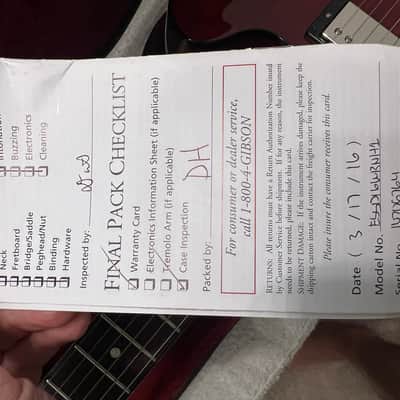 Intonation
Buzzing
Electronics
Cleaning
Neck
Fretboard
Bridge/Saddle
Peghead/Nut
Binding
Hardware
Inspected by:
FINAL PACK CHECKLIST
Warranty Card
Electronics Information Sheet (if applicable)
Tremolo Arm (if applicable)
Case Inspection
Packed by: DH
For consumer or dealer service,
call 1-800-4-GIBSON
RETURNS: All returns must have a Return Authorization Number issued
by Customer Service before shipment. If for any reason, the instrument
needs to be returned, please include this card.
SHIPMENT DAMAGE: If the instrument arrives damaged, please keep the
shipping carton intact and contact the freight carrier for inspection.
Please insure the consumer receives this card.
Date ( 3 / 17 / 16 )
Model No.
Serial No.